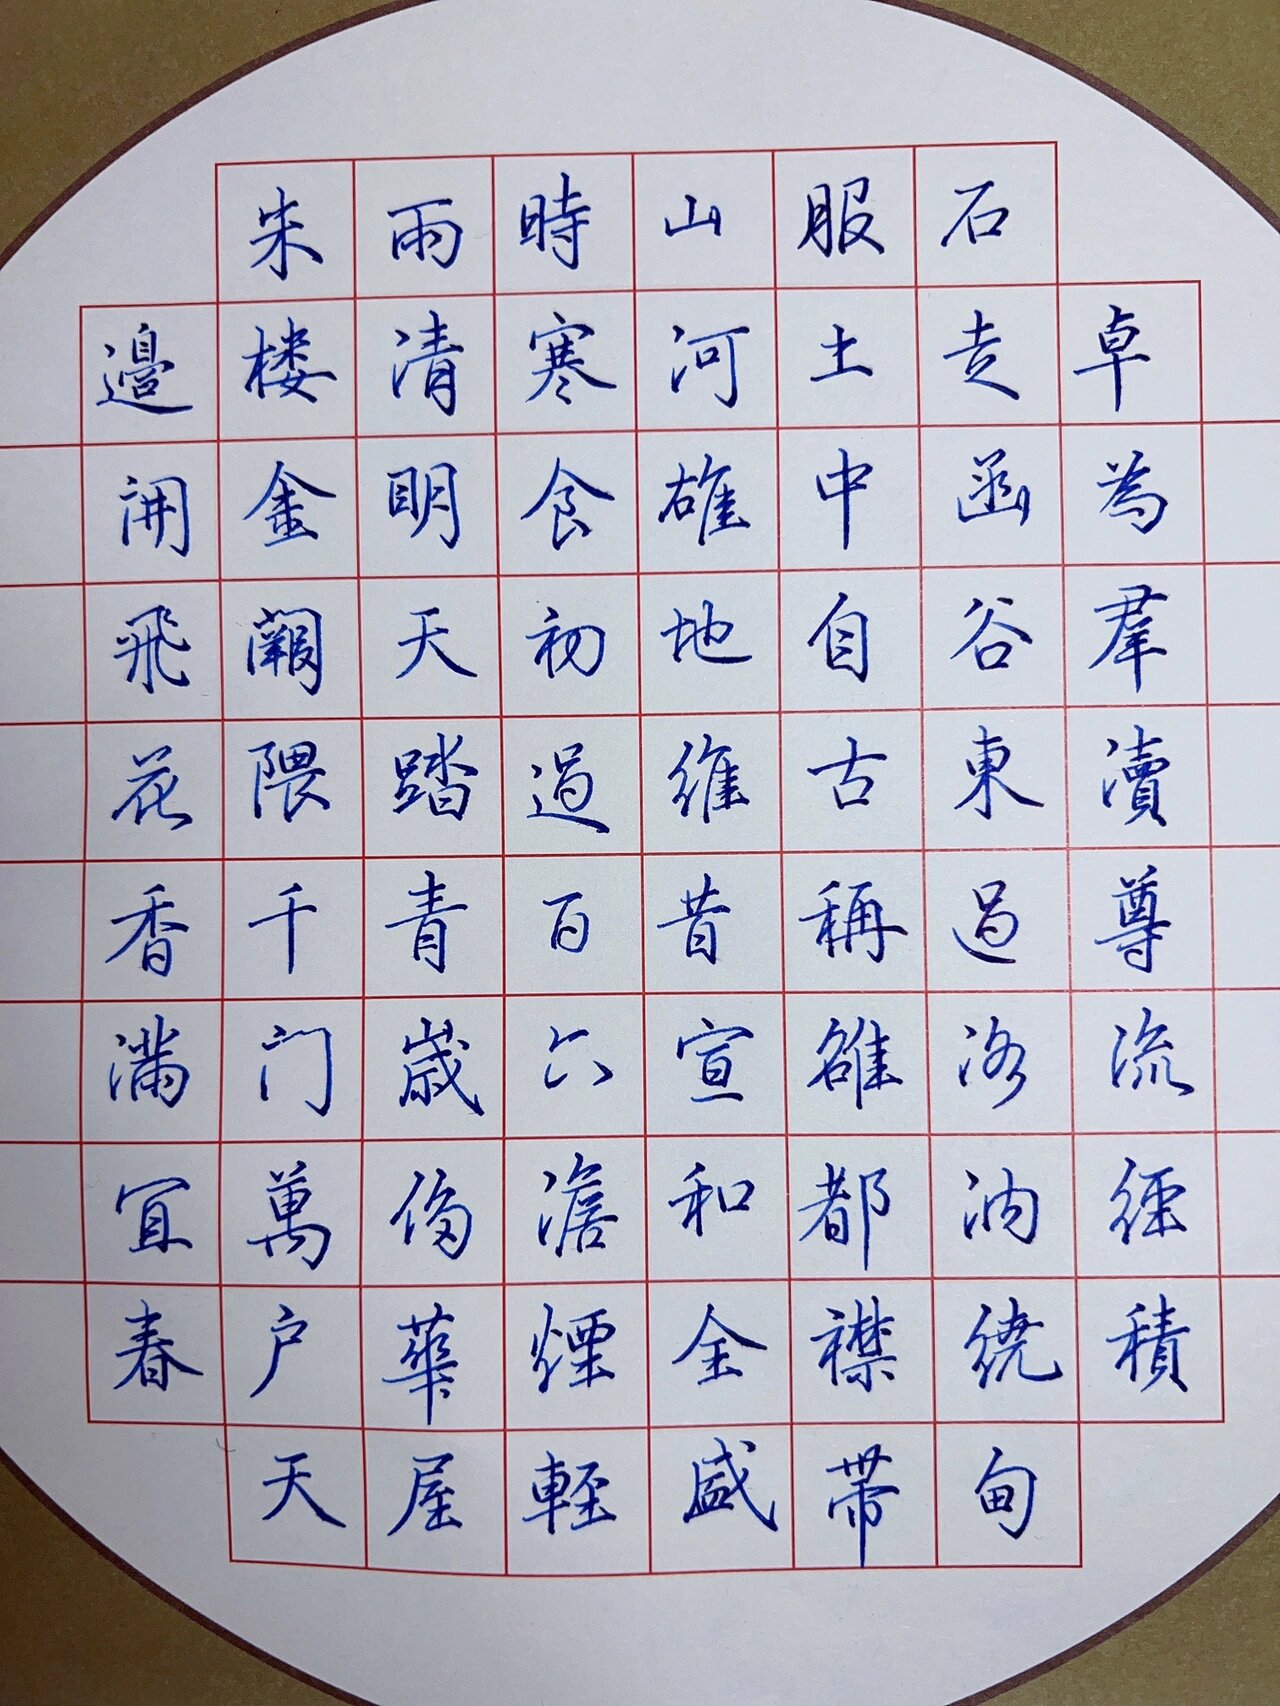 卓為羣瀆尊流經積
石走函谷東過洛汭繞甸
服土中自古稱雒都襟帶
山河雄地維昔宣和全盛
時寒食初過百六澹煙輕
雨清明天踏青歲侈華屋
朱楼金闕隈千门萬户天
邊開飛花香滿宜春